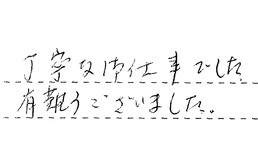 丁寧なお仕事でした
有難うございました。